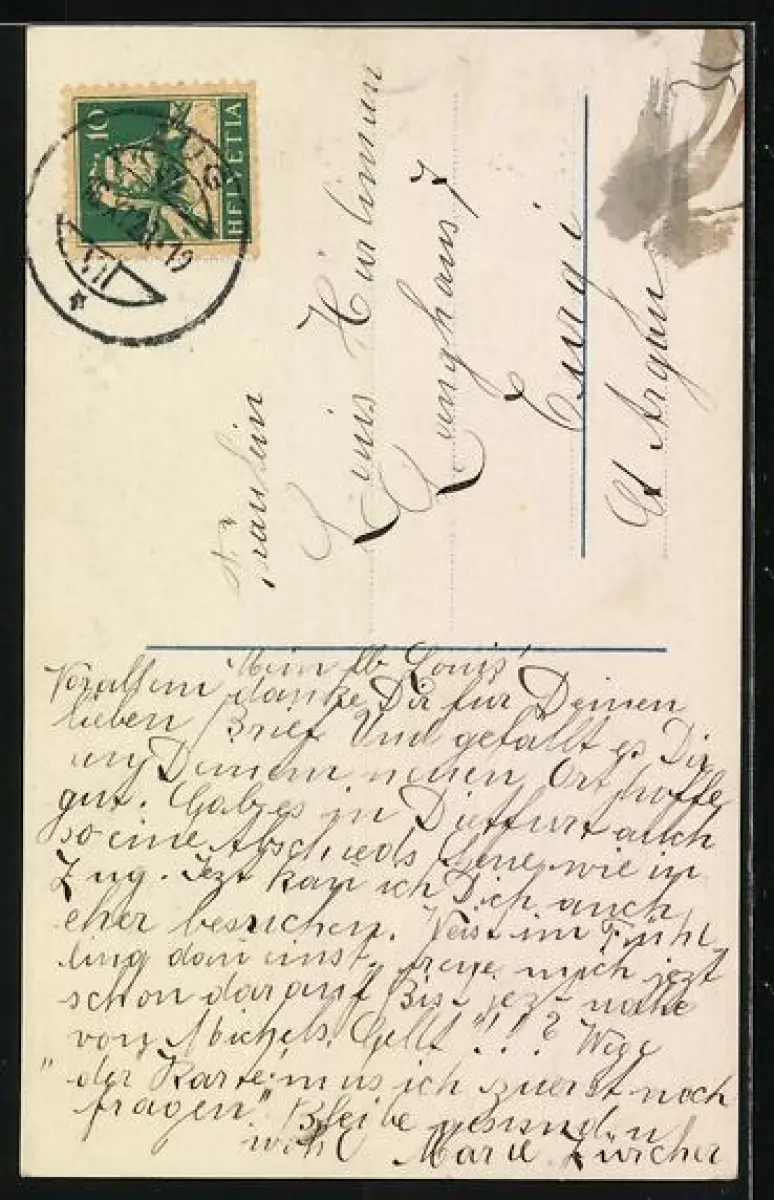 10
HELVETIA
ZUG
Fräulein
Louis Hürlimann
Langhaus 7
Turgi
Ct Argau
Mein lb Louis!
Vorallem danke Dir für Deinen
lieben Brief. Und gefällt es Dir
an Deinem neuen Ort hoffe
gut. Gab es in Dietfurt auch
so eine Abschieds wie in
Zug. Jezt kan ich Dich auch
eher besuchen. Weist im Früh
ling dan einst, freue mich jezt
schon darauf Bist jezt nahe
von Michels. Gellt"!!? Wege
"der Karte mus ich zuerst noch
fragen" Bleibe gesund u
wohl Marie Zürcher